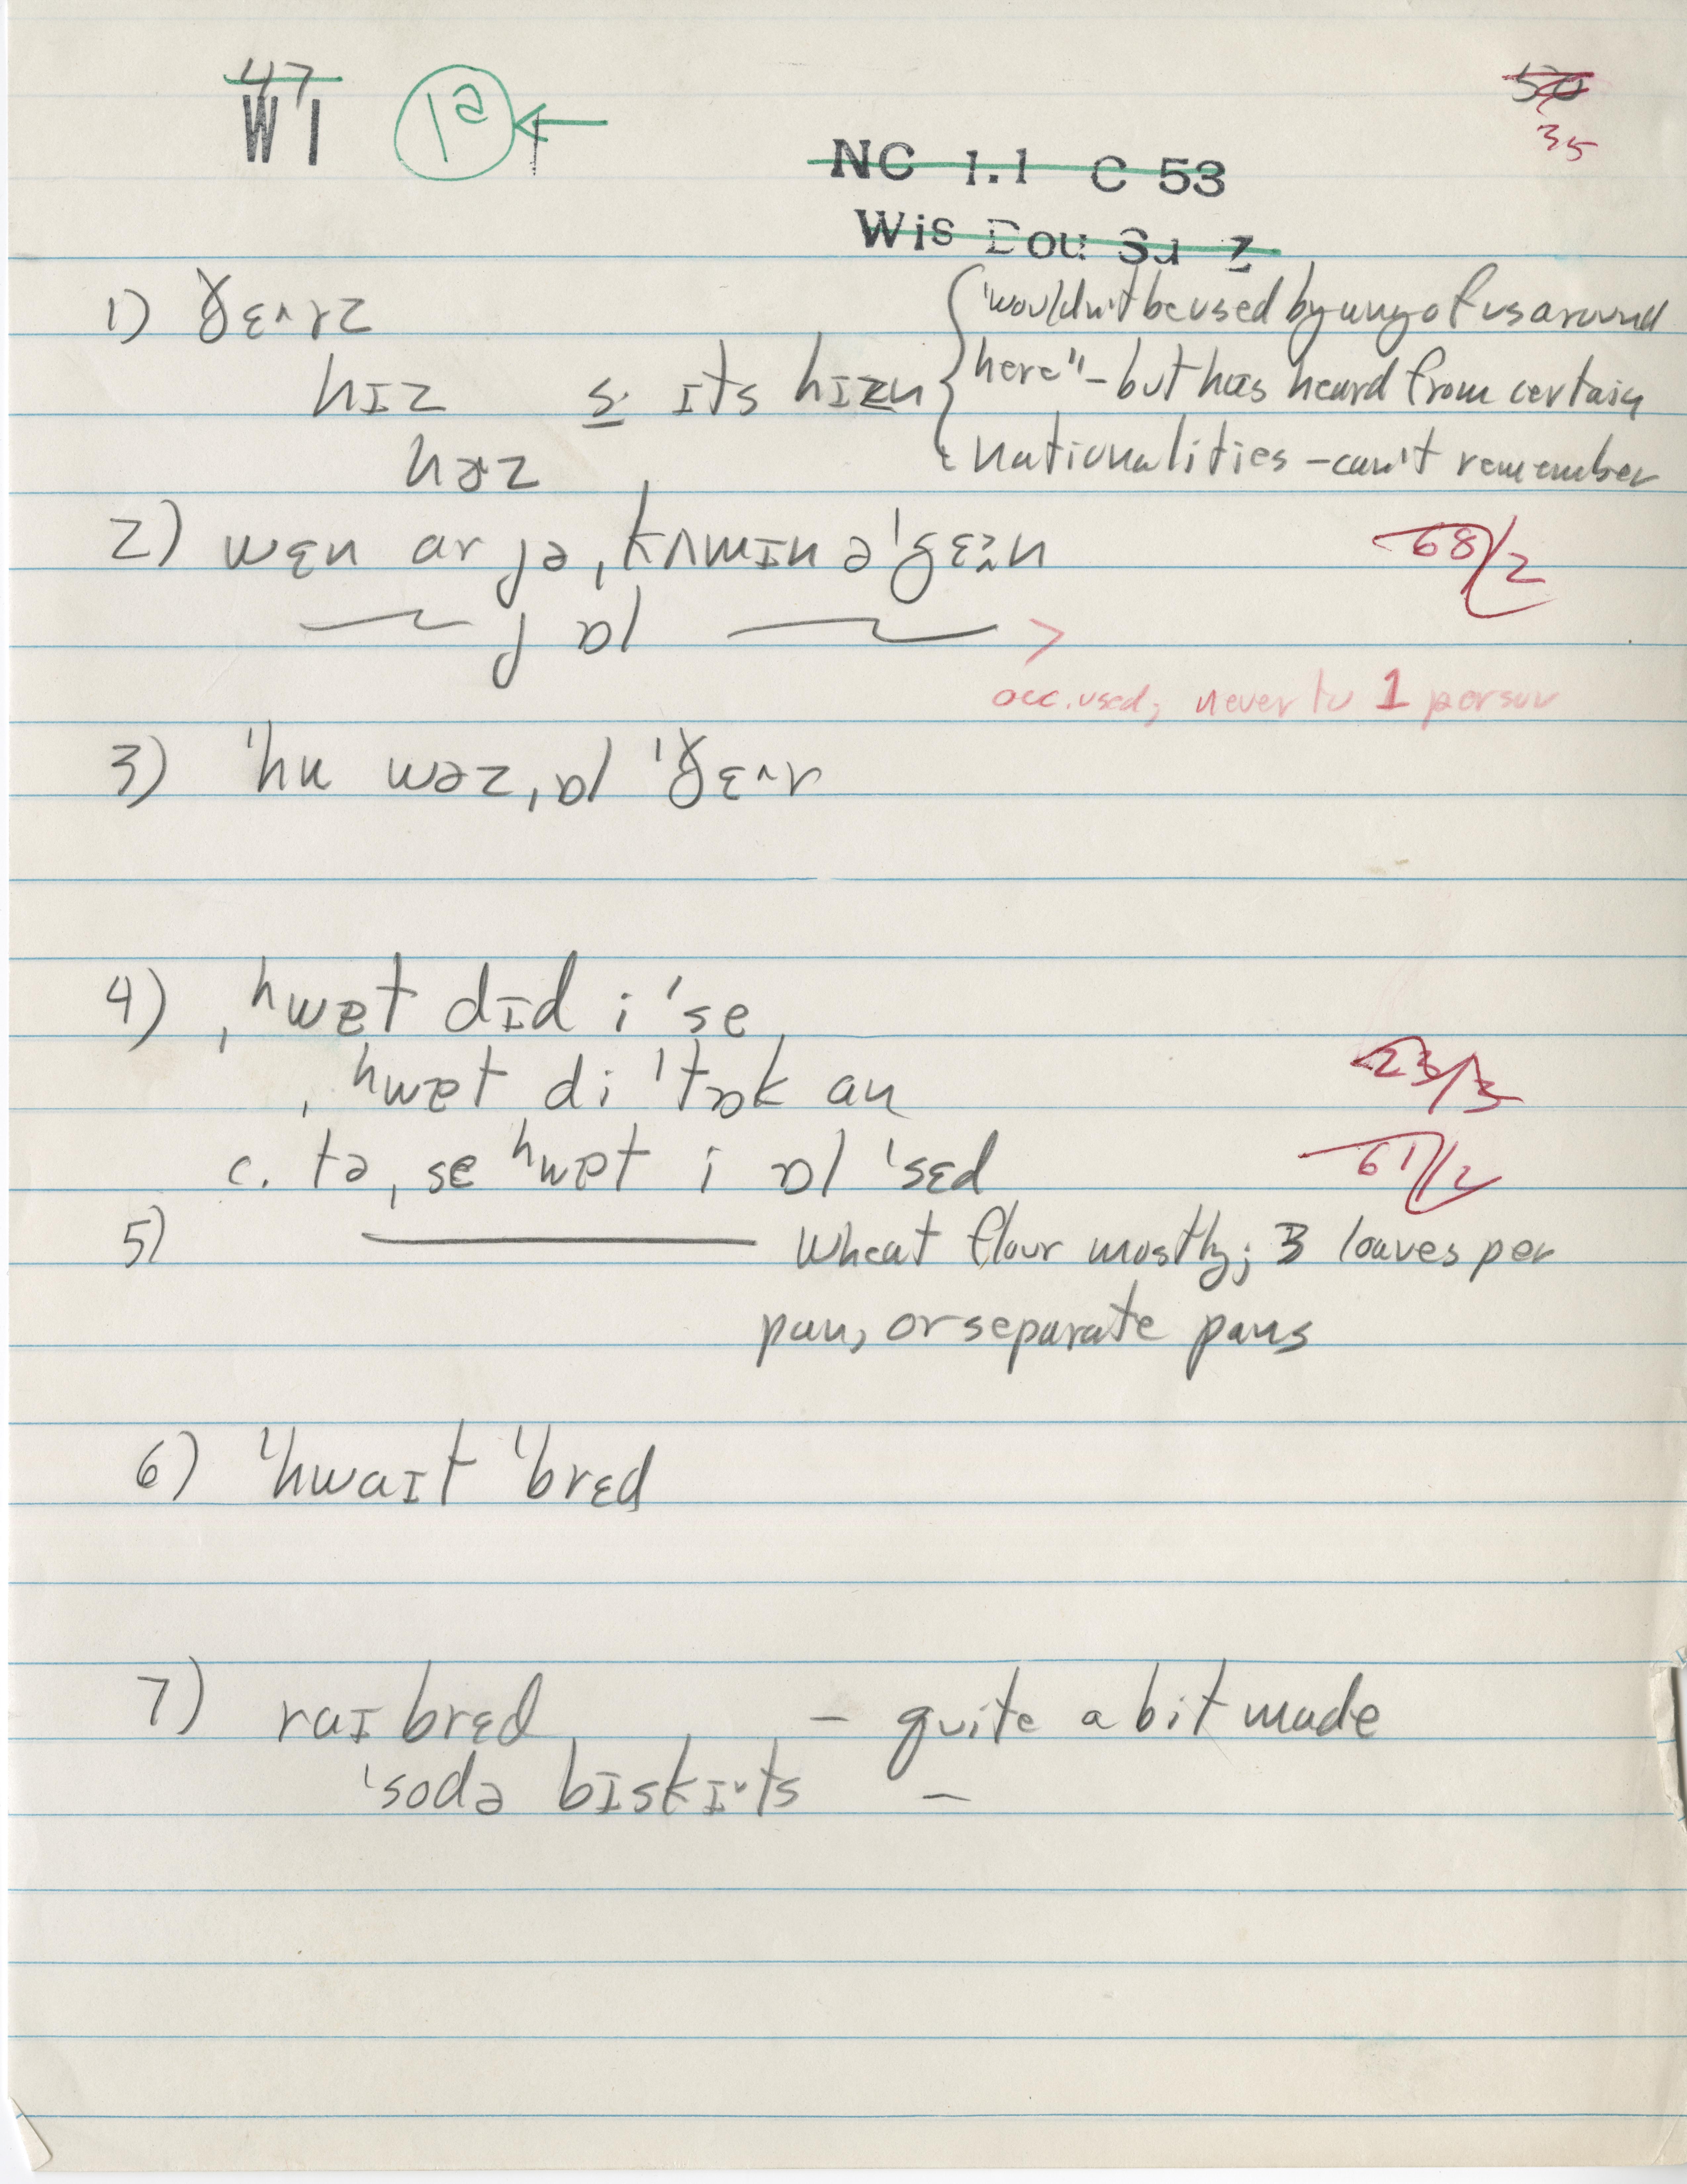 47
W 1 1a
50
35
NC 1.1 C 53
Wis Dou Su 2
1) ðɛ^rz
hɪz s. ɪts hɪzn { "wouldn't be used by any of us around
here" – but has heard from certain
hɚz nationalities – can't remember
2) wɛn ar jə ˌkʌmɪn əˈgɛn 68/2
j ɒl >
occ. used; never to 1 person
3) ˈhu wəz ˌɒl ˈðɛ^r
4) ˌhwɐt dɪd i ˈse
ˌhwɐt di ˈtɒk an 23/3
c. tə ˌse hwɐt i ɒl ˈsɛd 61/2
5) ——— wheat flour mostly; 3 loaves per
pan, or separate pans
6) ˈhwaɪt ˈbrɛd
7) raɪ brɛd – quite a bit made
ˈsodə bɪskɪ˅ts –